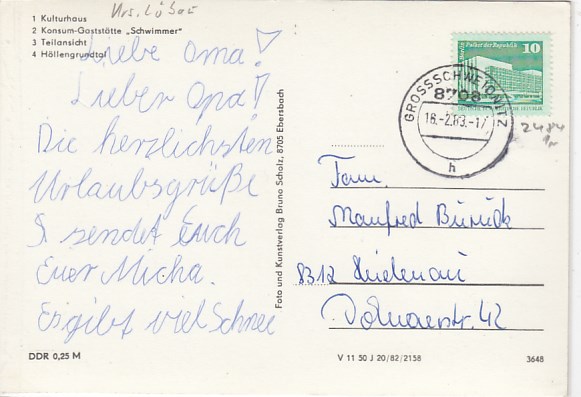 Krs. Löbau
1 Kulturhaus
2 Konsum-Gaststätte „Schwimmer"
3 Teilansicht
4 Höllengrundtal
Liebe Oma!
Lieber Opa!
Die herzlichsten
Urlaubsgrüße
sendet Euch
Euer Micha.
Es gibt viel Schnee
DDR 0,25 M
Foto und Kunstverlag Bruno Scholz, 8705 Ebersbach
Palast der Republik 10
GROSSSCHWEIDNITZ
8708
18.-2.83.-17
h
2484
Fam.
Manfred
8312 Heidenau
42
V 11 50 J 20/82/2158
3648